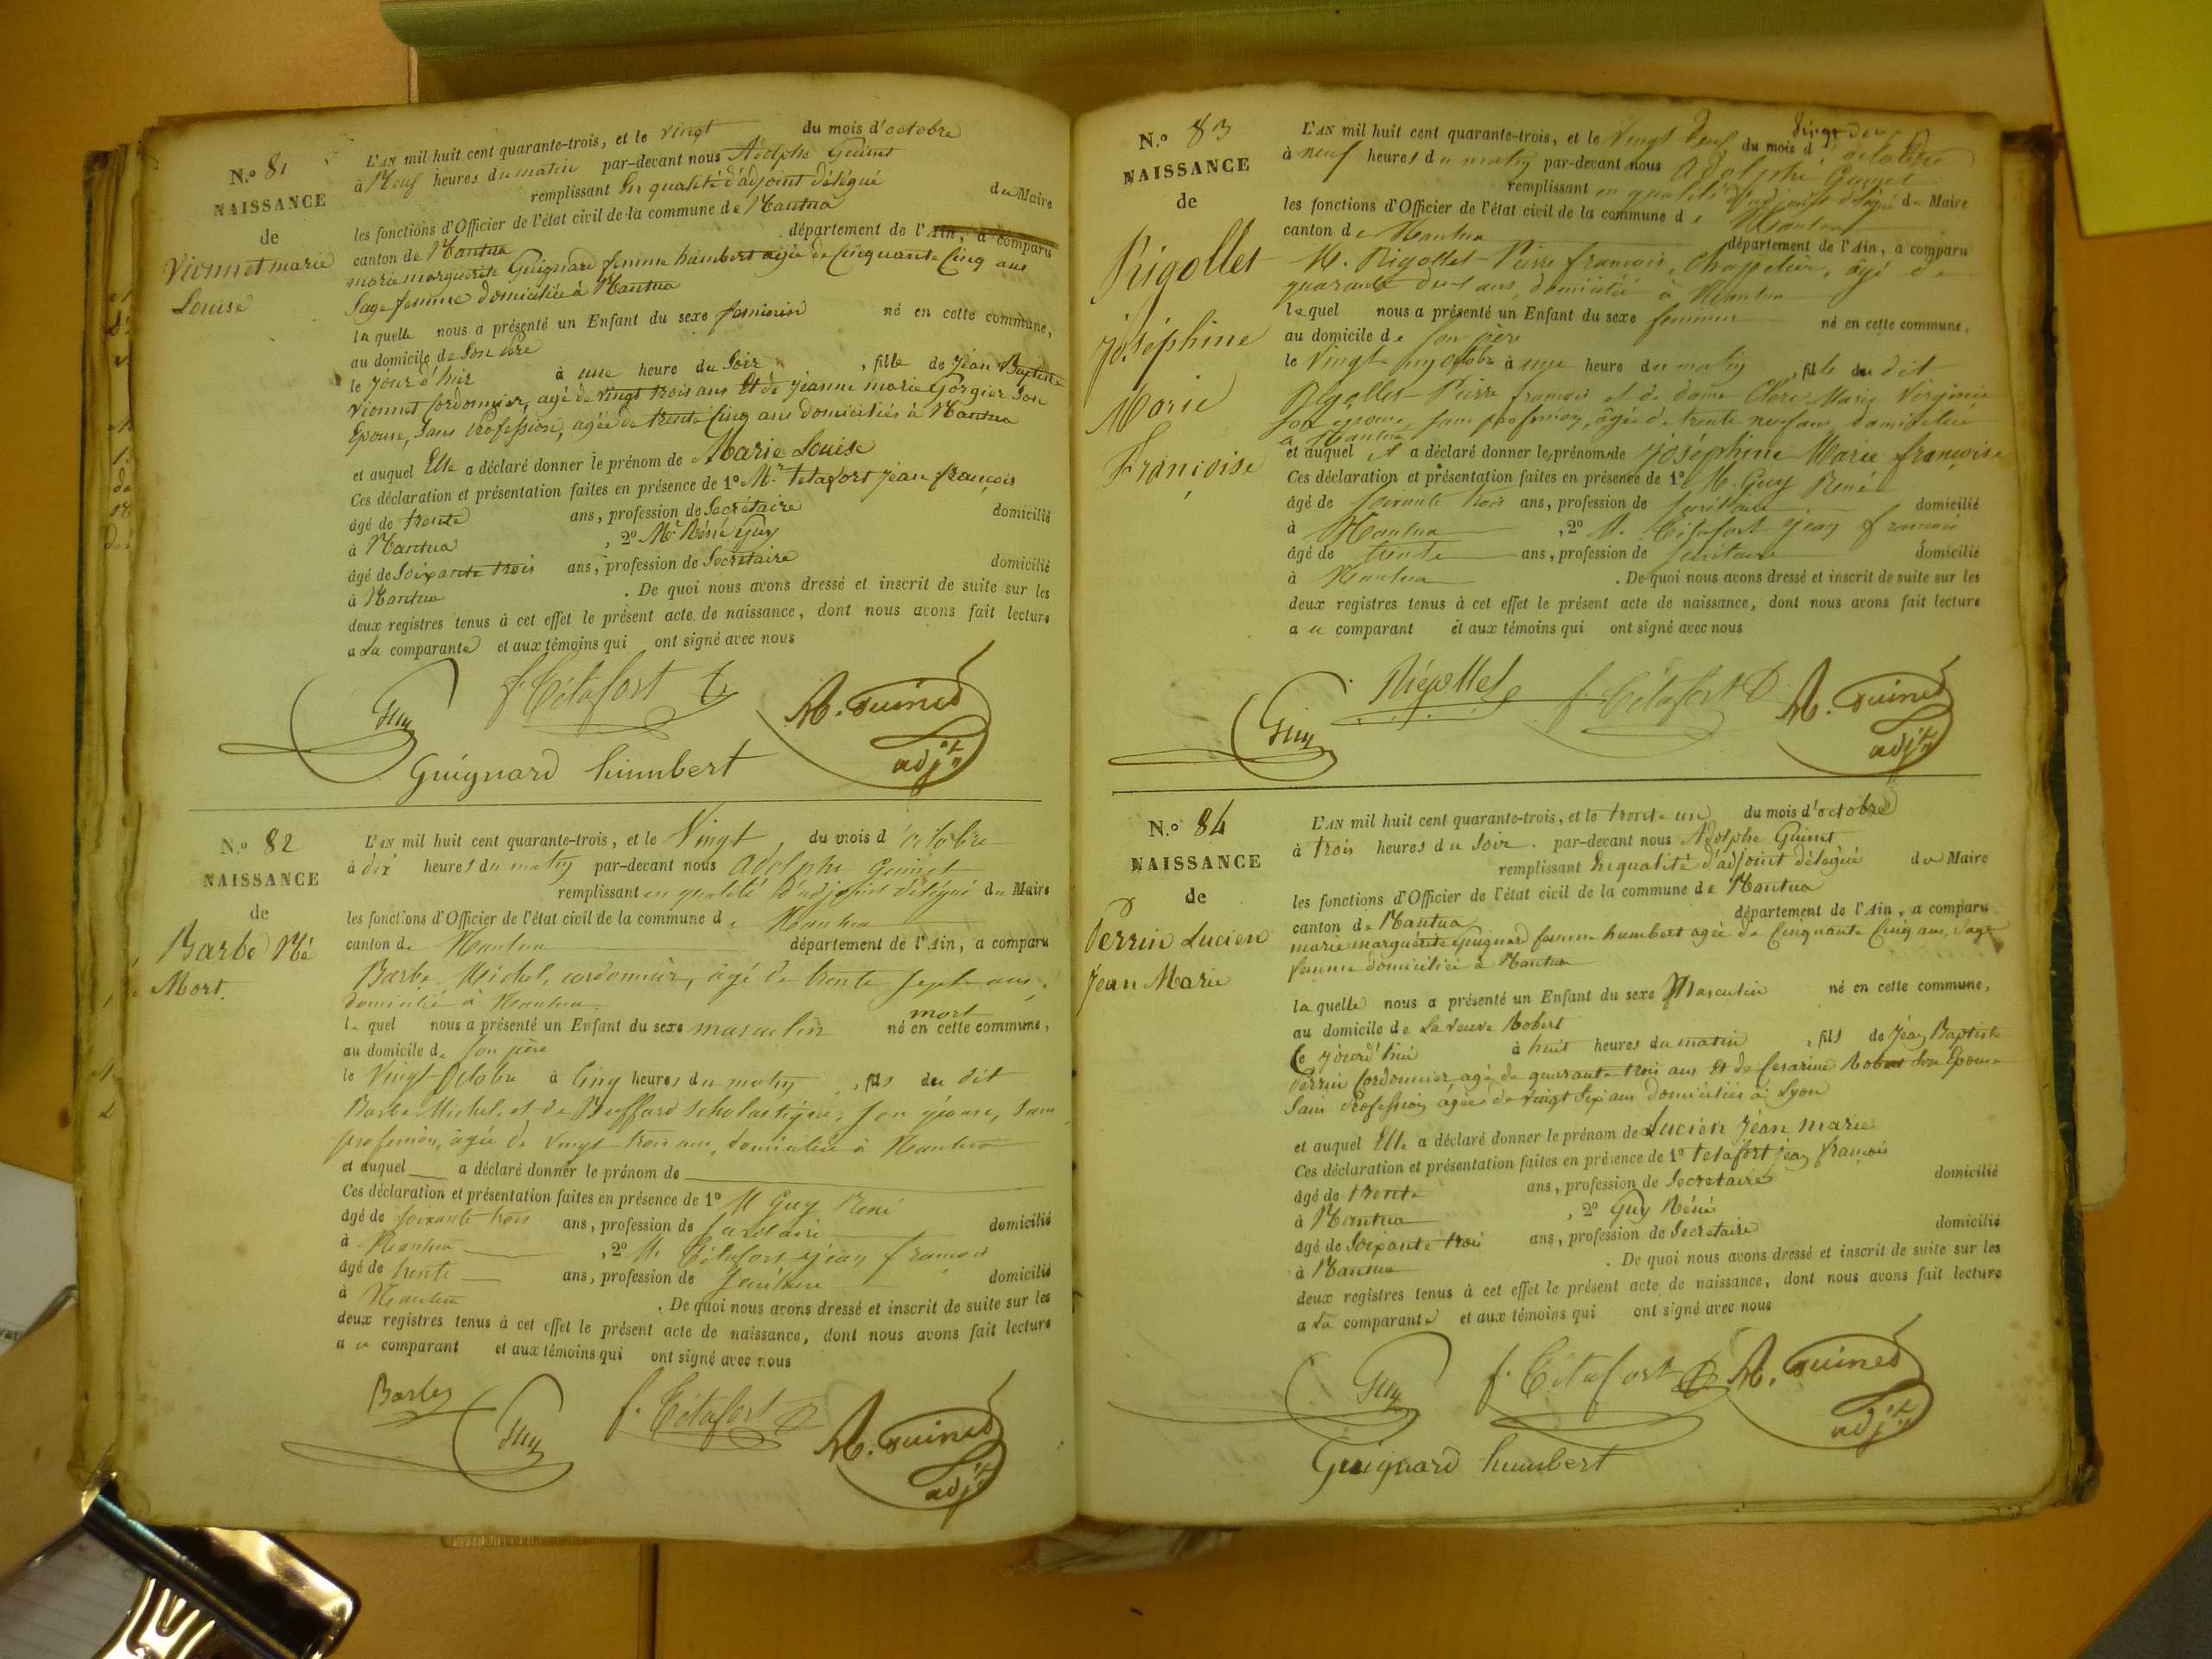 N.o 81
NAISSANCE
de
Vionnet marie
Louise
L'AN mil huit cent quarante-trois, et le vingt du mois d'octobre
à Neuf heures du matin par-devant nous Adolphe Guinet
remplissant En qualité d'adjoint délégué du Maire
les fonctions d'Officier de l'état civil de la commune de Nantua
canton de Nantua département de l'Ain, a comparu
marie marguerite Guignard femme humbert agée de Cinquante Cinq ans
Sage femme domiciliée à Nantua
la quelle nous a présenté un Enfant du sexe feminin né en cette commune,
au domicile de Son Père
le jour d'hier à une heure du Soir, fille de Jean Baptiste
Vionnet Cordonnier, agé de vingt trois ans Et de jeanne marie Gorgier Son
Epouse, Sans Profession, agée de trente Cinq ans domiciliés à Nantua
et auquel Elle a déclaré donner le prénom de Marie Louise
Ces déclaration et présentation faites en présence de 1o Mr. tetafort jean françois
âgé de trente ans, profession de Secrétaire domicilié
à Nantua, 2o Mr Réné Guy
âgé de Soixante trois ans, profession de Secrétaire domicilié
à Nantua. De quoi nous avons dressé et inscrit de suite sur les
deux registres tenus à cet effet le présent acte de naissance, dont nous avons fait lecture
a La comparante et aux témoins qui ont signé avec nous
Guy f. Tétafort A. Guinet
adjt
Guignard humbert
N.o 82
NAISSANCE
de
Barbe Né
Mort.
L'AN mil huit cent quarante-trois, et le Vingt du mois d'octobre
à dix heures du matin par-devant nous Adolphe Guinet
remplissant en qualité d'adjoint délégué du Maire
les fonctions d'Officier de l'état civil de la commune de Nantua
canton de Nantua département de l'Ain, a comparu
Barbe Michel, cordonnier, âgé de trente sept ans,
domicilié à Nantua
le quel nous a présenté un Enfant du sexe masculin né mort en cette commune,
au domicile de son père
le Vingt Octobre à Cinq heures du matin, fils du dit
Barbe Michel, et de Buffard Scholastique, son épouse, sans
profession, âgée de vingt trois ans, domiciliée à Nantua
et auquel a déclaré donner le prénom de
Ces déclaration et présentation faites en présence de 1o M Guy René
âgé de soixante trois ans, profession de secrétaire domicilié
à Nantua, 2o M. Tétafort jean françois
âgé de trente ans, profession de secrétaire domicilié
à Nantua. De quoi nous avons dressé et inscrit de suite sur les
deux registres tenus à cet effet le présent acte de naissance, dont nous avons fait lecture
a u comparant et aux témoins qui ont signé avec nous
Guy f. Tétafort A. Guinet
adjt
N.o 83
NAISSANCE
de
Rigollet
joséphine
Marie
Françoise
L'AN mil huit cent quarante-trois, et le Vingt deux du mois d'octobre
à neuf heures du matin par-devant nous Adolphe Guinet
remplissant en qualité d'adjoint délégué du Maire
les fonctions d'Officier de l'état civil de la commune de Nantua
canton de Nantua département de l'Ain, a comparu
M. Rigollet Pierre françois, Chapelier, âgé de
quarante deux ans, domicilié à Nantua
le quel nous a présenté un Enfant du sexe feminin né en cette commune,
au domicile de son père
le Vingt un octobre à une heure du matin, fille du dit
Rigollet Pierre françois et de dame Clerc Marie Virginie
son épouse, sans profession, âgée de trente neuf ans, domiciliée
à Nantua
et auquel il a déclaré donner le prénom de joséphine Marie françoise
Ces déclaration et présentation faites en présence de 1o M. Guy René
âgé de soixante trois ans, profession de secrétaire domicilié
à Nantua, 2o M. Tétafort jean françois
âgé de trente ans, profession de secrétaire domicilié
à Nantua. De quoi nous avons dressé et inscrit de suite sur les
deux registres tenus à cet effet le présent acte de naissance, dont nous avons fait lecture
a u comparant et aux témoins qui ont signé avec nous
Guy Rigollet f. Tétafort A. Guinet
adjt
N.o 84
NAISSANCE
de
Perrin Lucien
Jean Marie
L'AN mil huit cent quarante-trois, et le trente un du mois d'octobre
à trois heures du Soir. par-devant nous Adolphe Guinet
remplissant En qualité d'adjoint délégué du Maire
les fonctions d'Officier de l'état civil de la commune de Nantua
canton de Nantua département de l'Ain, a comparu
marie marguérite Guignard femme humbert agée de Cinquante Cinq ans, Sage
femme domiciliée à Nantua
la quelle nous a présenté un Enfant du sexe Masculin né en cette commune,
au domicile de La veuve Robert
Ce jourd'hui à huit heures du matin, fils de Jean Baptiste
Perrin Cordonnier, agé de quarante trois ans Et de Cesarine Robert Son Epouse
Sans Profession agée de vingt Six ans domiciliés à Lyon
et auquel Elle a déclaré donner le prénom de Lucien jean marie
Ces déclaration et présentation faites en présence de 1o tetafort jean françois
âgé de trente ans, profession de Secretaire domicilié
à Nantua, 2o Guy Réné
âgé de Soixante trois ans, profession de Secretaire domicilié
à Nantua. De quoi nous avons dressé et inscrit de suite sur les
deux registres tenus à cet effet le présent acte de naissance, dont nous avons fait lecture
a La comparante et aux témoins qui ont signé avec nous
Guy f. Tétafort A. Guinet
adjt
Guignard humbert